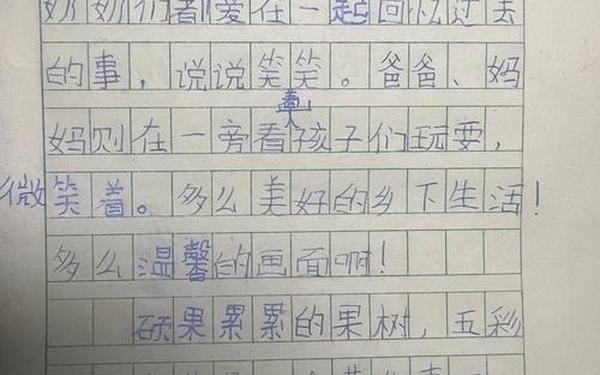 奶奶们都爱在一起回忆过去
的事，说说笑笑。爸爸、妈
妈则在一旁看着孩子们玩耍，
微笑着。多么美好的乡下生活！
多么温馨的画面啊！
硕果累累的果树，五彩